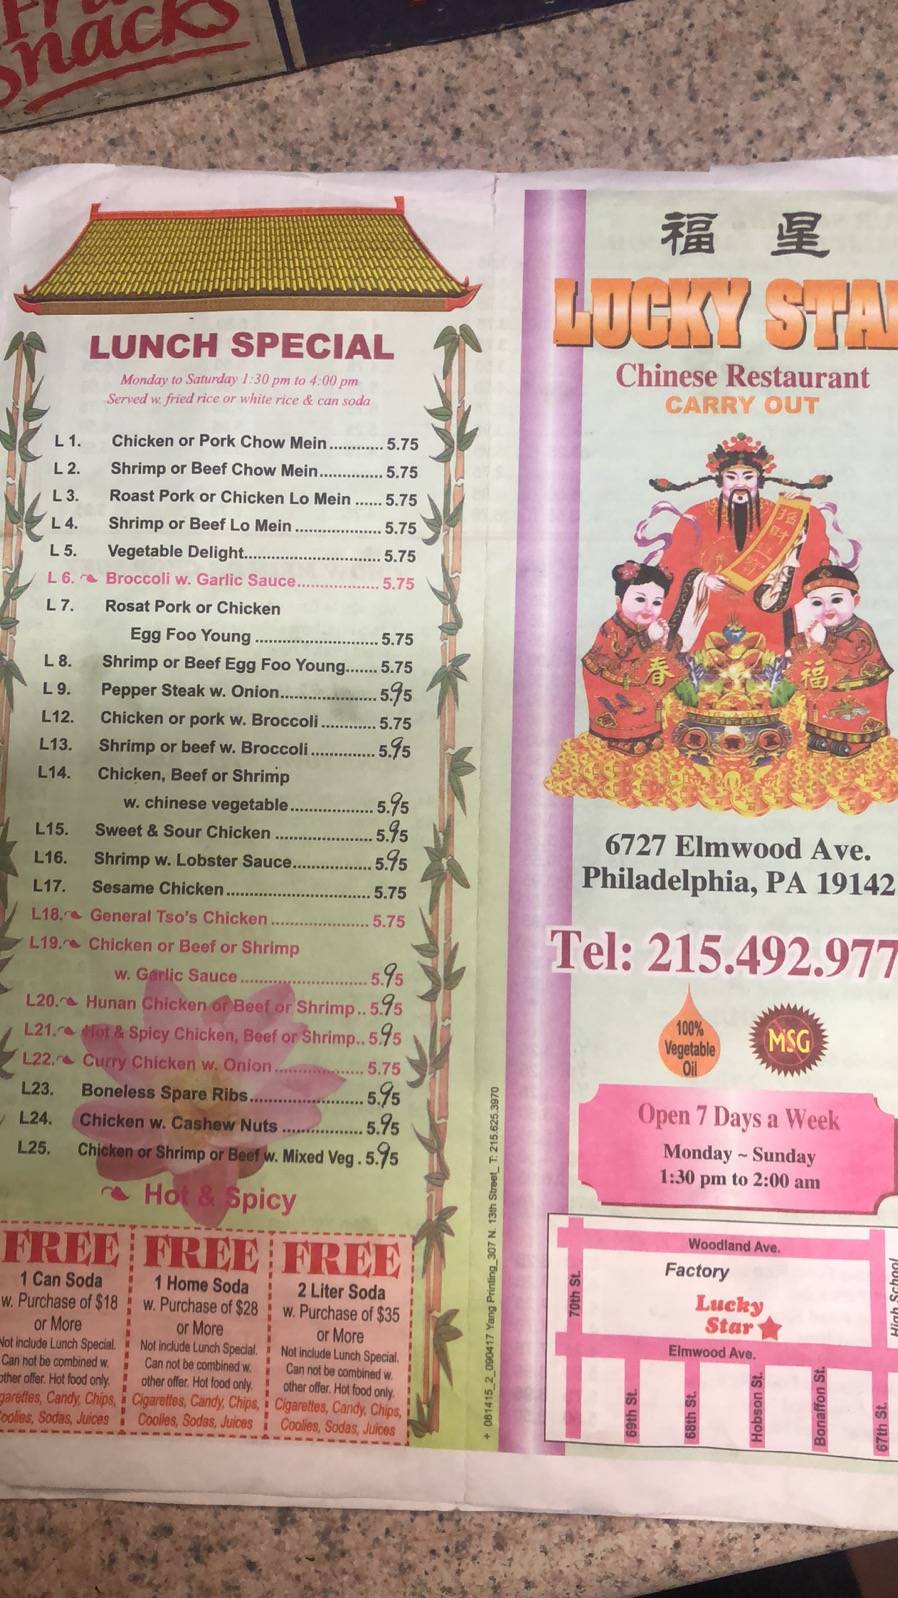 Snacks
LUNCH SPECIAL
Monday to Saturday 1:30 pm to 4:00 pm
Served w. fried rice or white rice & can soda
L 1. Chicken or Pork Chow Mein............ 5.75
L 2. Shrimp or Beef Chow Mein.............. 5.75
L 3. Roast Pork or Chicken Lo Mein ...... 5.75
L 4. Shrimp or Beef Lo Mein .................. 5.75
L 5. Vegetable Delight............................ 5.75
L 6. Broccoli w. Garlic Sauce................. 5.75
L 7. Rosat Pork or Chicken
Egg Foo Young ......................... 5.75
L 8. Shrimp or Beef Egg Foo Young....... 5.75
L 9. Pepper Steak w. Onion.................... 5.95
L12. Chicken or pork w. Broccoli ............ 5.75
L13. Shrimp or beef w. Broccoli ............. 5.95
L14. Chicken, Beef or Shrimp
w. chinese vegetable.................. 5.95
L15. Sweet & Sour Chicken .................... 5.95
L16. Shrimp w. Lobster Sauce................ 5.95
L17. Sesame Chicken............................. 5.75
L18. General Tso's Chicken .................... 5.75
L19. Chicken or Beef or Shrimp
w. Garlic Sauce .......................... 5.95
L20. Hunan Chicken or Beef or Shrimp.. 5.95
L21. Hot & Spicy Chicken, Beef or Shrimp.. 5.95
L22. Curry Chicken w. Onion.................. 5.75
L23. Boneless Spare Ribs....................... 5.95
L24. Chicken w. Cashew Nuts ................ 5.95
L25. Chicken or Shrimp or Beef w. Mixed Veg . 5.95
Hot & Spicy
FREE
1 Can Soda
w. Purchase of $18
or More
Not include Lunch Special.
Can not be combined w.
other offer. Hot food only.
garettes, Candy, Chips,
Coolies, Sodas, Juices
FREE
1 Home Soda
w. Purchase of $28
or More
Not include Lunch Special.
Can not be combined w.
other offer. Hot food only.
Cigarettes, Candy, Chips,
Coolies, Sodas, Juices
FREE
2 Liter Soda
w. Purchase of $35
or More
Not include Lunch Special.
Can not be combined w.
other offer. Hot food only.
Cigarettes, Candy, Chips,
Coolies, Sodas, Juices
+ 081415_2_090417 Yang Printing_307 N. 13th Street_ T: 215.625.3970
福 星
LUCKY STA
Chinese Restaurant
CARRY OUT
招財進
春
福
6727 Elmwood Ave.
Philadelphia, PA 19142
Tel: 215.492.977
100%
Vegetable
Oil
MSG
Open 7 Days a Week
Monday ~ Sunday
1:30 pm to 2:00 am
Woodland Ave.
Factory
70th St.
Lucky
Star
High School
Elmwood Ave.
69th St.
68th St.
Hobson St.
Bonaffon St.
67th St.